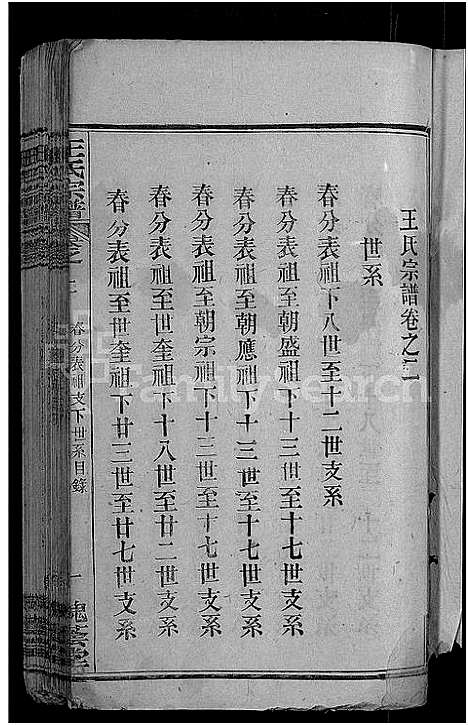 王氏宗譜卷之二
世系
春分表祖下八世至十二世支系
春分表祖至朝盛祖下十三世至十七世支系
春分表祖至朝應祖下十三世至十七世支系
春分表祖至朝宗祖下十三世至十七世支系
春分表祖至世奎祖下十八世至廿二世支系
春分表祖至世奎祖下廿三世至廿七世支系
王氏宗譜
春分表祖支下世系目錄
一
槐蔭堂
FamilySearch